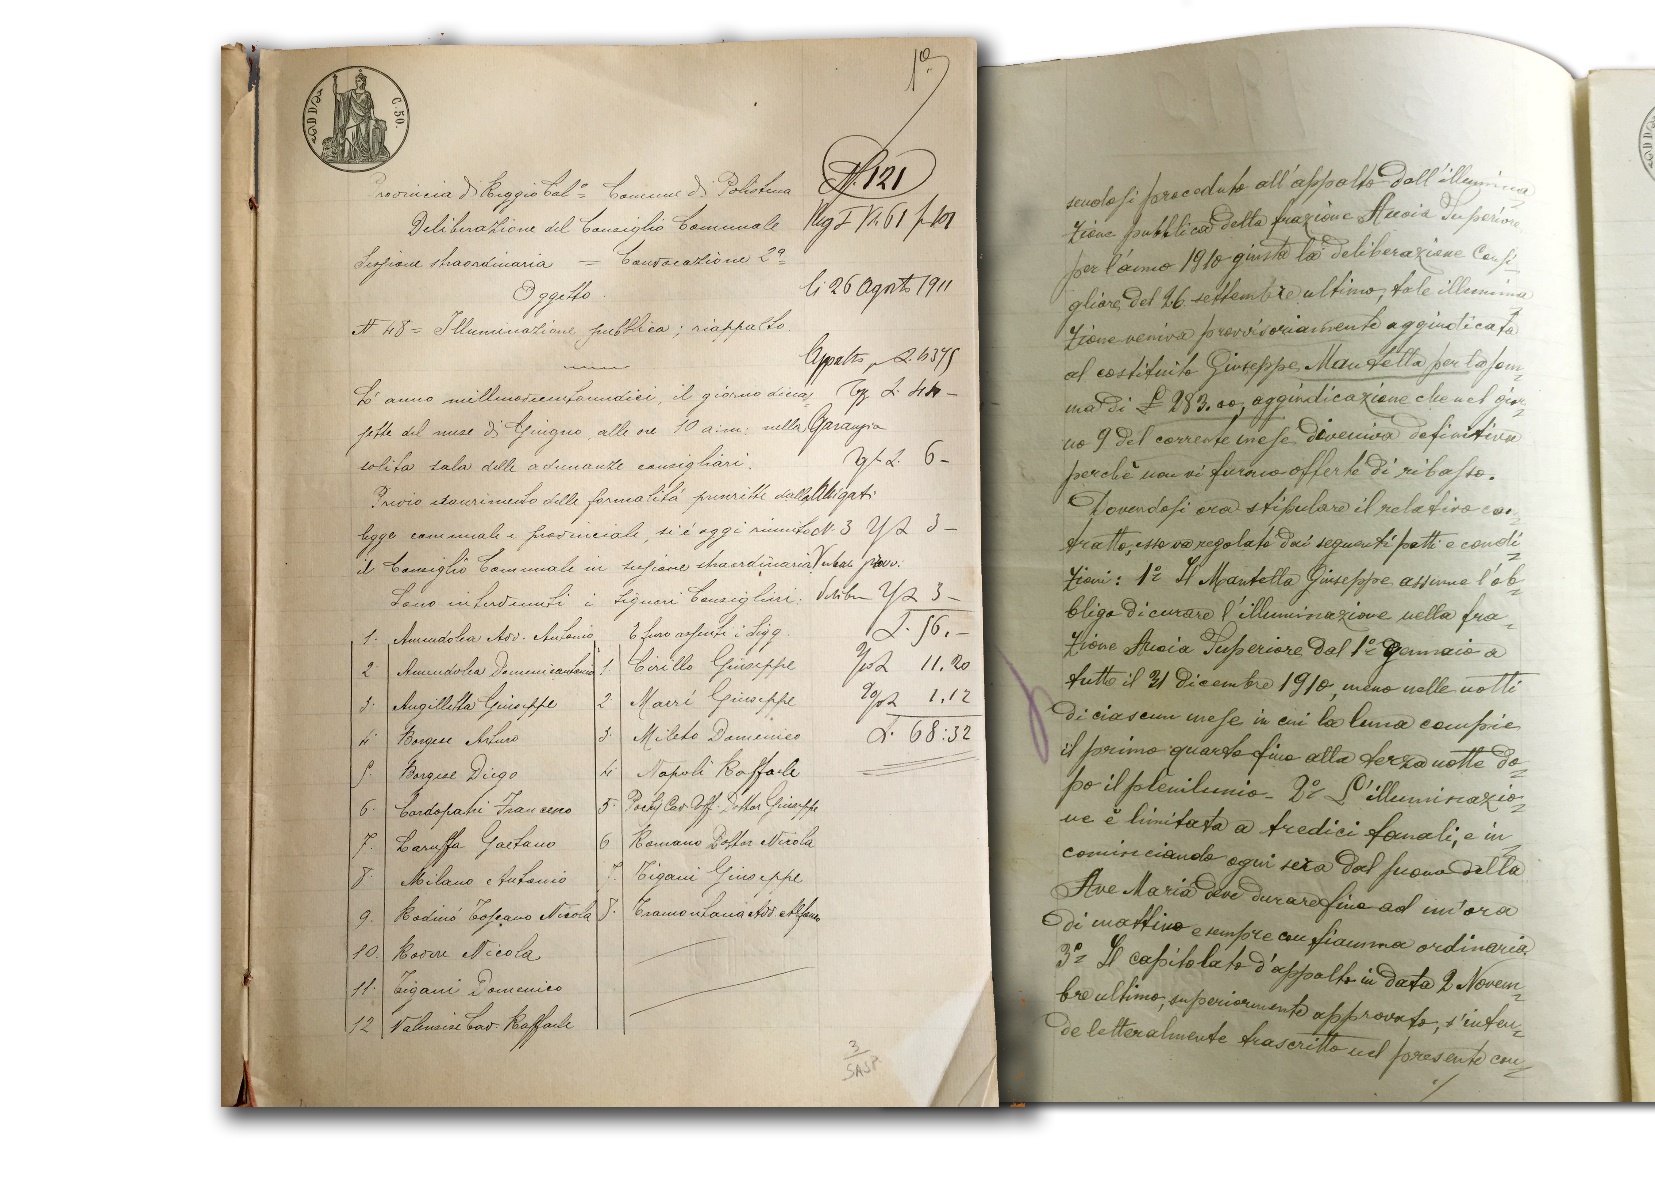 1º
C. 50.
N. 121
Provincia di Reggio Cal.ª Comune di Polistena
Deliberazione del Consiglio Comunale
Sessione straordinaria = Convocazione 2ª
Oggetto
N 48 = Illuminazione pubblica; riappalto.
L'anno millenovecentoundici, il giorno dicia
sette del mese di Giugno, alle ore 10 a.m. nella
solita sala delle adunanze consigliari.
Previo esaurimento delle formalità prescritte dalla
legge comunale e provinciale, si è oggi riunito
il Consiglio Comunale in sessione straordinaria
Sono intervenuti i Signori Consiglieri:
1. Amendolea Avv. Antonio
2 Amendolea Domenicantonio
3. Angilletta Giuseppe
4. Borgese Arturo
5. Borgese Diego
6. Cordopatri Francesco
7. Laruffa Gaetano
8. Milano Antonio
9. Rodinò Toscano Nicola
10. Rovere Nicola
11. Tigani Domenico
12 Valensise Cav. Raffaele
E furo assenti i Sigg.
1. Cirillo Giuseppe
2 Mileto Domenico
4. Napoli Raffaele
6 Romano Dottor Nicola
7. Tigani Giuseppe
8. Tramontana Avv. Alfonso
Reg I N. 61 f. 101
li 26 Agosto 1911
Appalto
Garanzia
6 -
Allegati
N. 3 3 -
3 -
L. 56. -
11.20
1.12
L. 68:32
3
sendosi proceduto all'appalto dell'illumina
zione pubblica della frazione Anoia Superiore
per l'anno 1910 giusta la deliberazione Consi
gliare del 26 settembre ultimo, tale illumina
zione veniva provvisoriamente aggiudicata
al costituito Giuseppe Mandella per la som
ma di £ 283.00, aggiudicazione che nel gior
no 9 del corrente mese diveniva definitiva
perchè non vi furono offerte di ribasso.
Dovendosi ora stipulare il relativo con
tratto, esso va regolato dai seguenti patti e condi
zioni: 1º Il Mantella Giuseppe assume l'ob
bligo di curare l'illuminazione nella fra
zione Anoia Superiore dal 1º Gennaio a
tutto il 31 dicembre 1910, meno nelle notti
di ciascun mese in cui la luna compie
il primo quarto fino alla terza notte do
po il plenilunio - 2º L'illuminazio
ne è limitata a tredici fanali, e in
cominciando ogni sera dal suono della
Ave Maria deve durare fino ad un'ora
di mattino e sempre con fiamma ordinaria
3º Il capitolato d'appalto in data 2 Novem
bre ultimo, superiormente approvato, s'inten
de letteralmente trascritto nel presente con